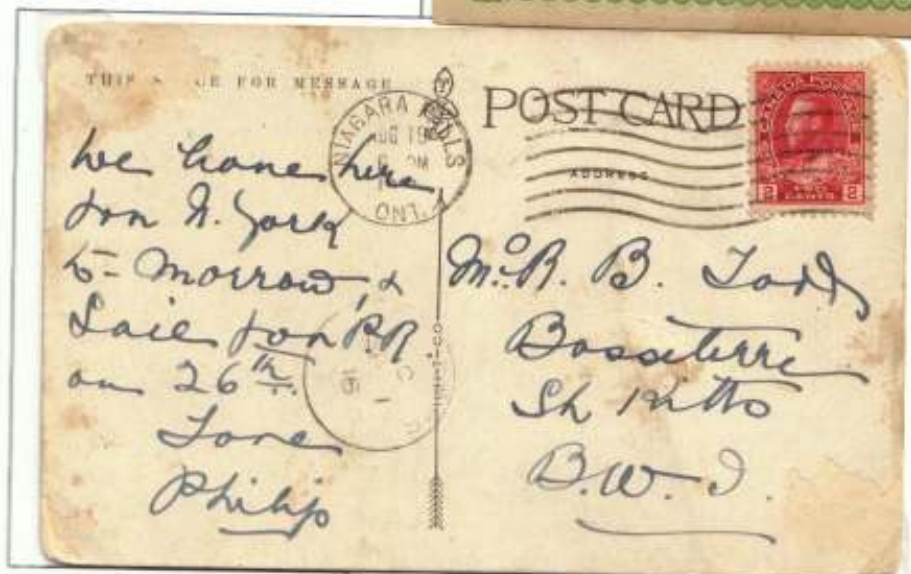 THIS FOR MESSAGE
POST CARD
ADDRESS
NIAGARA FALLS
AUG 19
PM
ONT.
CANADA POSTAGE
2 TWO CENTS 2
we leave here
for N. York
to-morrow, &
Sail for P.R.
on 26th.
Love
Philip
R. B. Todd
Basseterre
St Kitts
B.W.I.